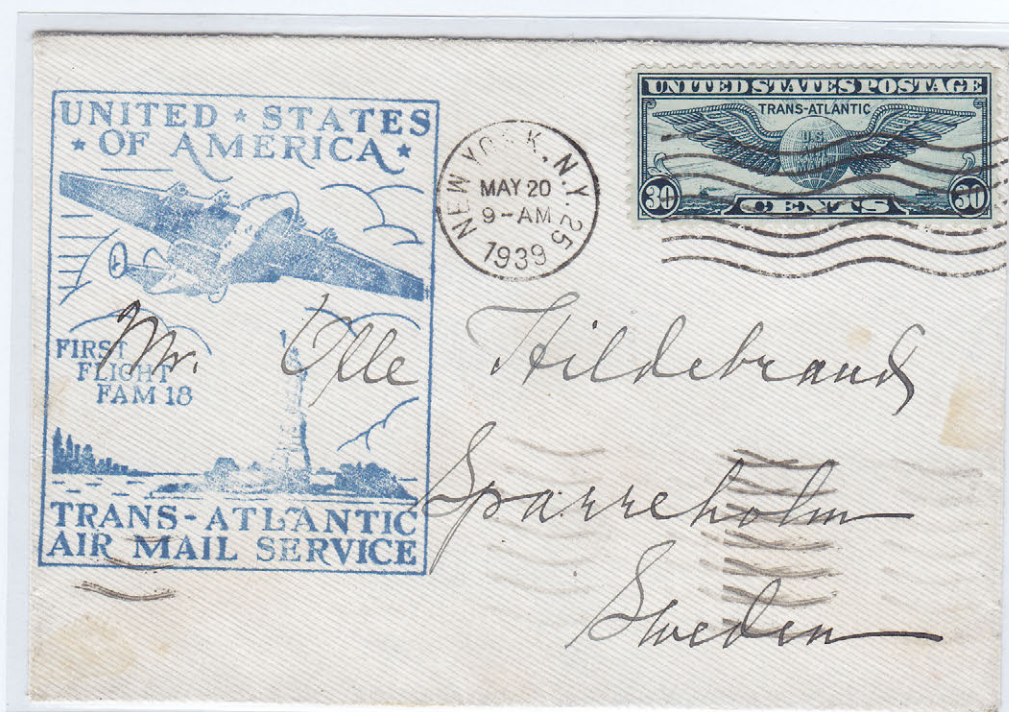 UNITED ★ STATES
★ OF AMERICA ★
FIRST
FLIGHT
FAM 18
TRANS-ATLANTIC
AIR MAIL SERVICE
NEW YORK, N.Y. 25
MAY 20
9-AM
1939
UNITED STATES POSTAGE
TRANS-ATLANTIC
U.S.
30 CENTS 30
Mr. Olle Hildebrand
Sparreholm
Sweden